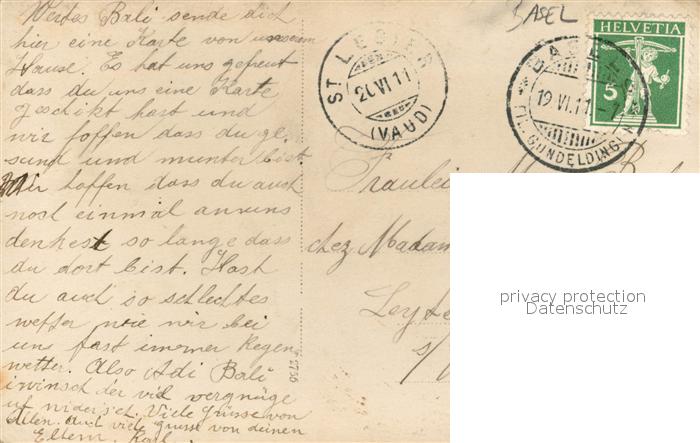 Wertes Bali sende dich
hier eine Karte von unserem
Hause. Es hat uns gefreut
dass du uns eine Karte
geschikt hast und
wir hoffen dass du ge-
sund und munter bist.
Wir hoffen dass du auch
noch einmal an uns
denkest so lange dass
du dort bist. Hast
du auch so schlechtes
wetter wie wir bei
uns fast immer Regen-
wetter. Also Adi Bali
i winsch der vil vergnüge
uf widerseh. Viele Grüsse von
Allen. Auch viele grüsse von deinen
Eltern. Karl
F 2756
ST LEGIER
20 VI 11
(VAUD)
BASEL
BASEL
19 VI 11 - 7
GUNDELDING
HELVETIA
5
Fräulein
chez Madam
Leyte
s/
privacy protection
Datenschutz